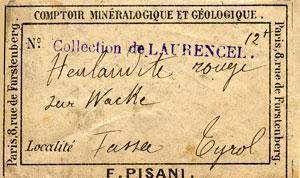 COMPTOIR MINÉRALOGIQUE ET GÉOLOGIQUE
Paris, 8, rue de Furstenberg.
N° Collection de LAURENCEL. 12+
Heulandite rouge
sur Wacke
Localité Fassa Tyrol
Paris, 8, rue de Furstenberg.
F. PISANI.